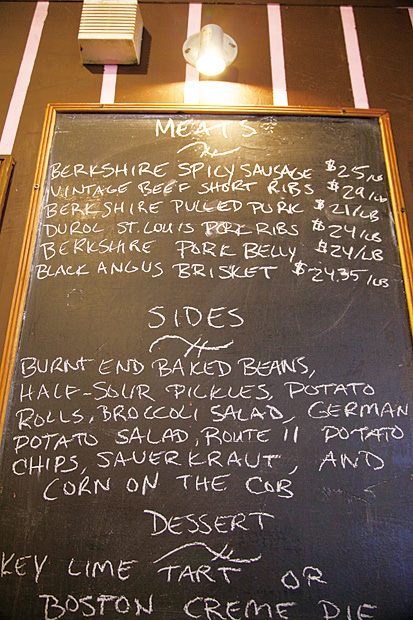 MEATS
BERKSHIRE SPICY SAUSAGE $25/LB
VINTAGE BEEF SHORT RIBS $29/LB
BERKSHIRE PULLED PORK $21/LB
DUROC ST. LOUIS PORK RIBS $24/LB
BERKSHIRE PORK BELLY $24/LB
BLACK ANGUS BRISKET $24.35/LB
SIDES
BURNT END BAKED BEANS,
HALF-SOUR PICKLES, POTATO
ROLLS, BROCCOLI SALAD, GERMAN
POTATO SALAD, ROUTE 11 POTATO
CHIPS, SAUERKRAUT, AND
CORN ON THE COB
DESSERT
KEY LIME TART OR
BOSTON CREME PIE